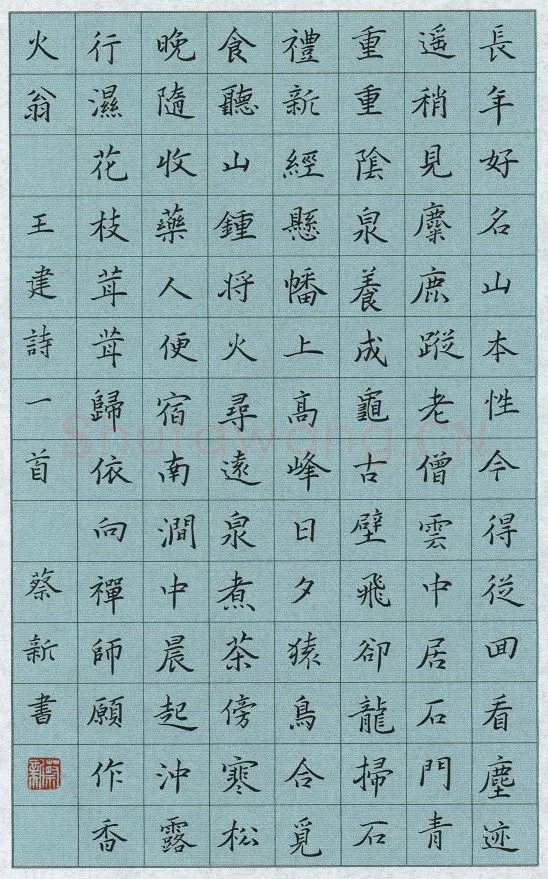 長年好名山本性今得従回看塵迹
遥稍見麋鹿蹤老僧雲中居石門青
重重陰泉養成龜古壁飛卻龍掃石
禮新經懸幡上高峰日夕猿鳥合覓
食聽山鍾将火尋遠泉煮茶傍寒松
晚隨收藥人便宿南澗中晨起沖露
行濕花枝茸茸歸依向禪師願作香
火翁 王建詩一首 蔡新書